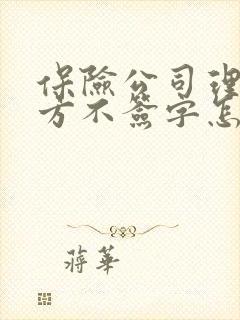 保險公司理
方不簽字怎
蔣華